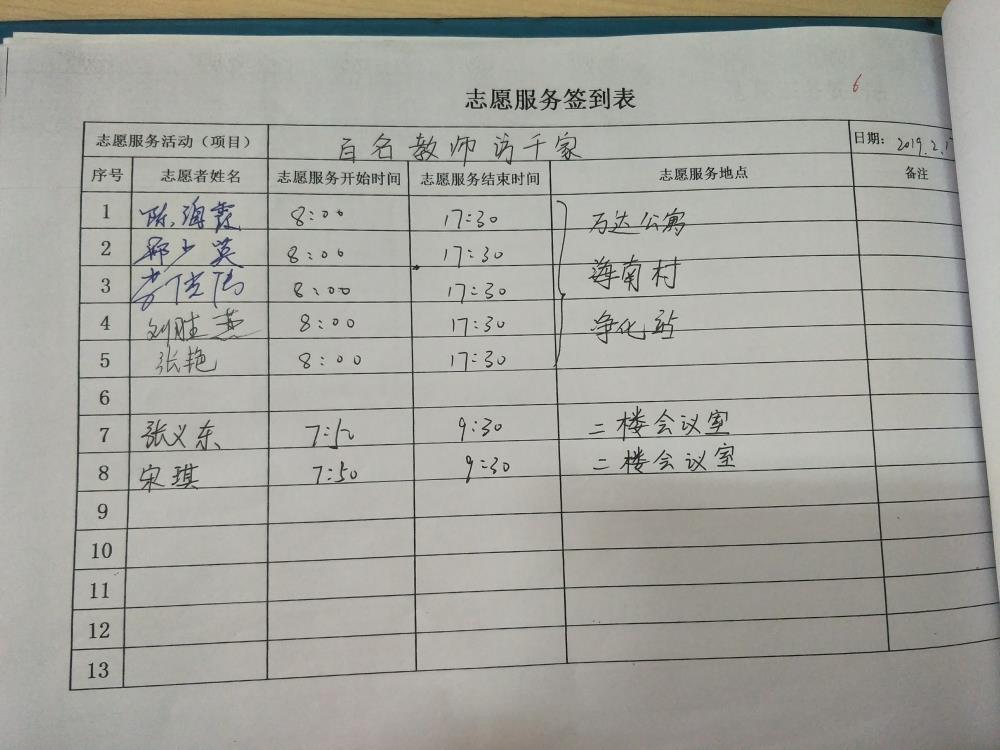 6
志愿服务签到表
志愿服务活动（项目） 百名教师访千家 日期： 2019.2.1
序号 志愿者姓名 志愿服务开始时间 志愿服务结束时间 志愿服务地点 备注
1 陈海霞 8:00 17:30 万达公寓
2 郑少英 8:00 17:30
3 8:00 17:30 海南村
4 刘胜燕 8:00 17:30 净化站
5 张艳 8:00 17:30
6
7 张义东 7:50 9:30 二楼会议室
8 宋琪 7:50 9:30 二楼会议室
9
10
11
12
13